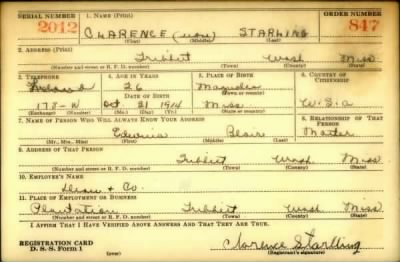 SERIAL NUMBER 1. NAME (Print) ORDER NUMBER
2012 CLARENCE (none) STARLING 847
(First) (Middle) (Last)
2. ADDRESS (Print)
Tribbett Wash Miss
(Number and street or R. F. D. number) (Town) (County) (State)
3. TELEPHONE 4. AGE IN YEARS 5. PLACE OF BIRTH 6. COUNTRY OF CITIZENSHIP
Leland 26 Magnolia
DATE OF BIRTH (Town or county)
178-W Oct. 21 1914 Miss U.S.A
(Exchange) (Number) (Mo.) (Day) (Yr.) (State or country)
7. NAME OF PERSON WHO WILL ALWAYS KNOW YOUR ADDRESS 8. RELATIONSHIP OF THAT PERSON
Edwina Blair Mother
(Mr., Mrs., Miss) (First) (Middle) (Last)
9. ADDRESS OF THAT PERSON
Tribbett Wash Miss
(Number and street or R. F. D. number) (Town) (County) (State)
10. EMPLOYER'S NAME
Dean & Co.
11. PLACE OF EMPLOYMENT OR BUSINESS
Plantation Tribbett Wash Miss
(Number and street or R. F. D. number) (Town) (County) (State)
I AFFIRM THAT I HAVE VERIFIED ABOVE ANSWERS AND THAT THEY ARE TRUE.
REGISTRATION CARD
D. S. S. FORM 1
Clarence Starling
(Registrant's signature)